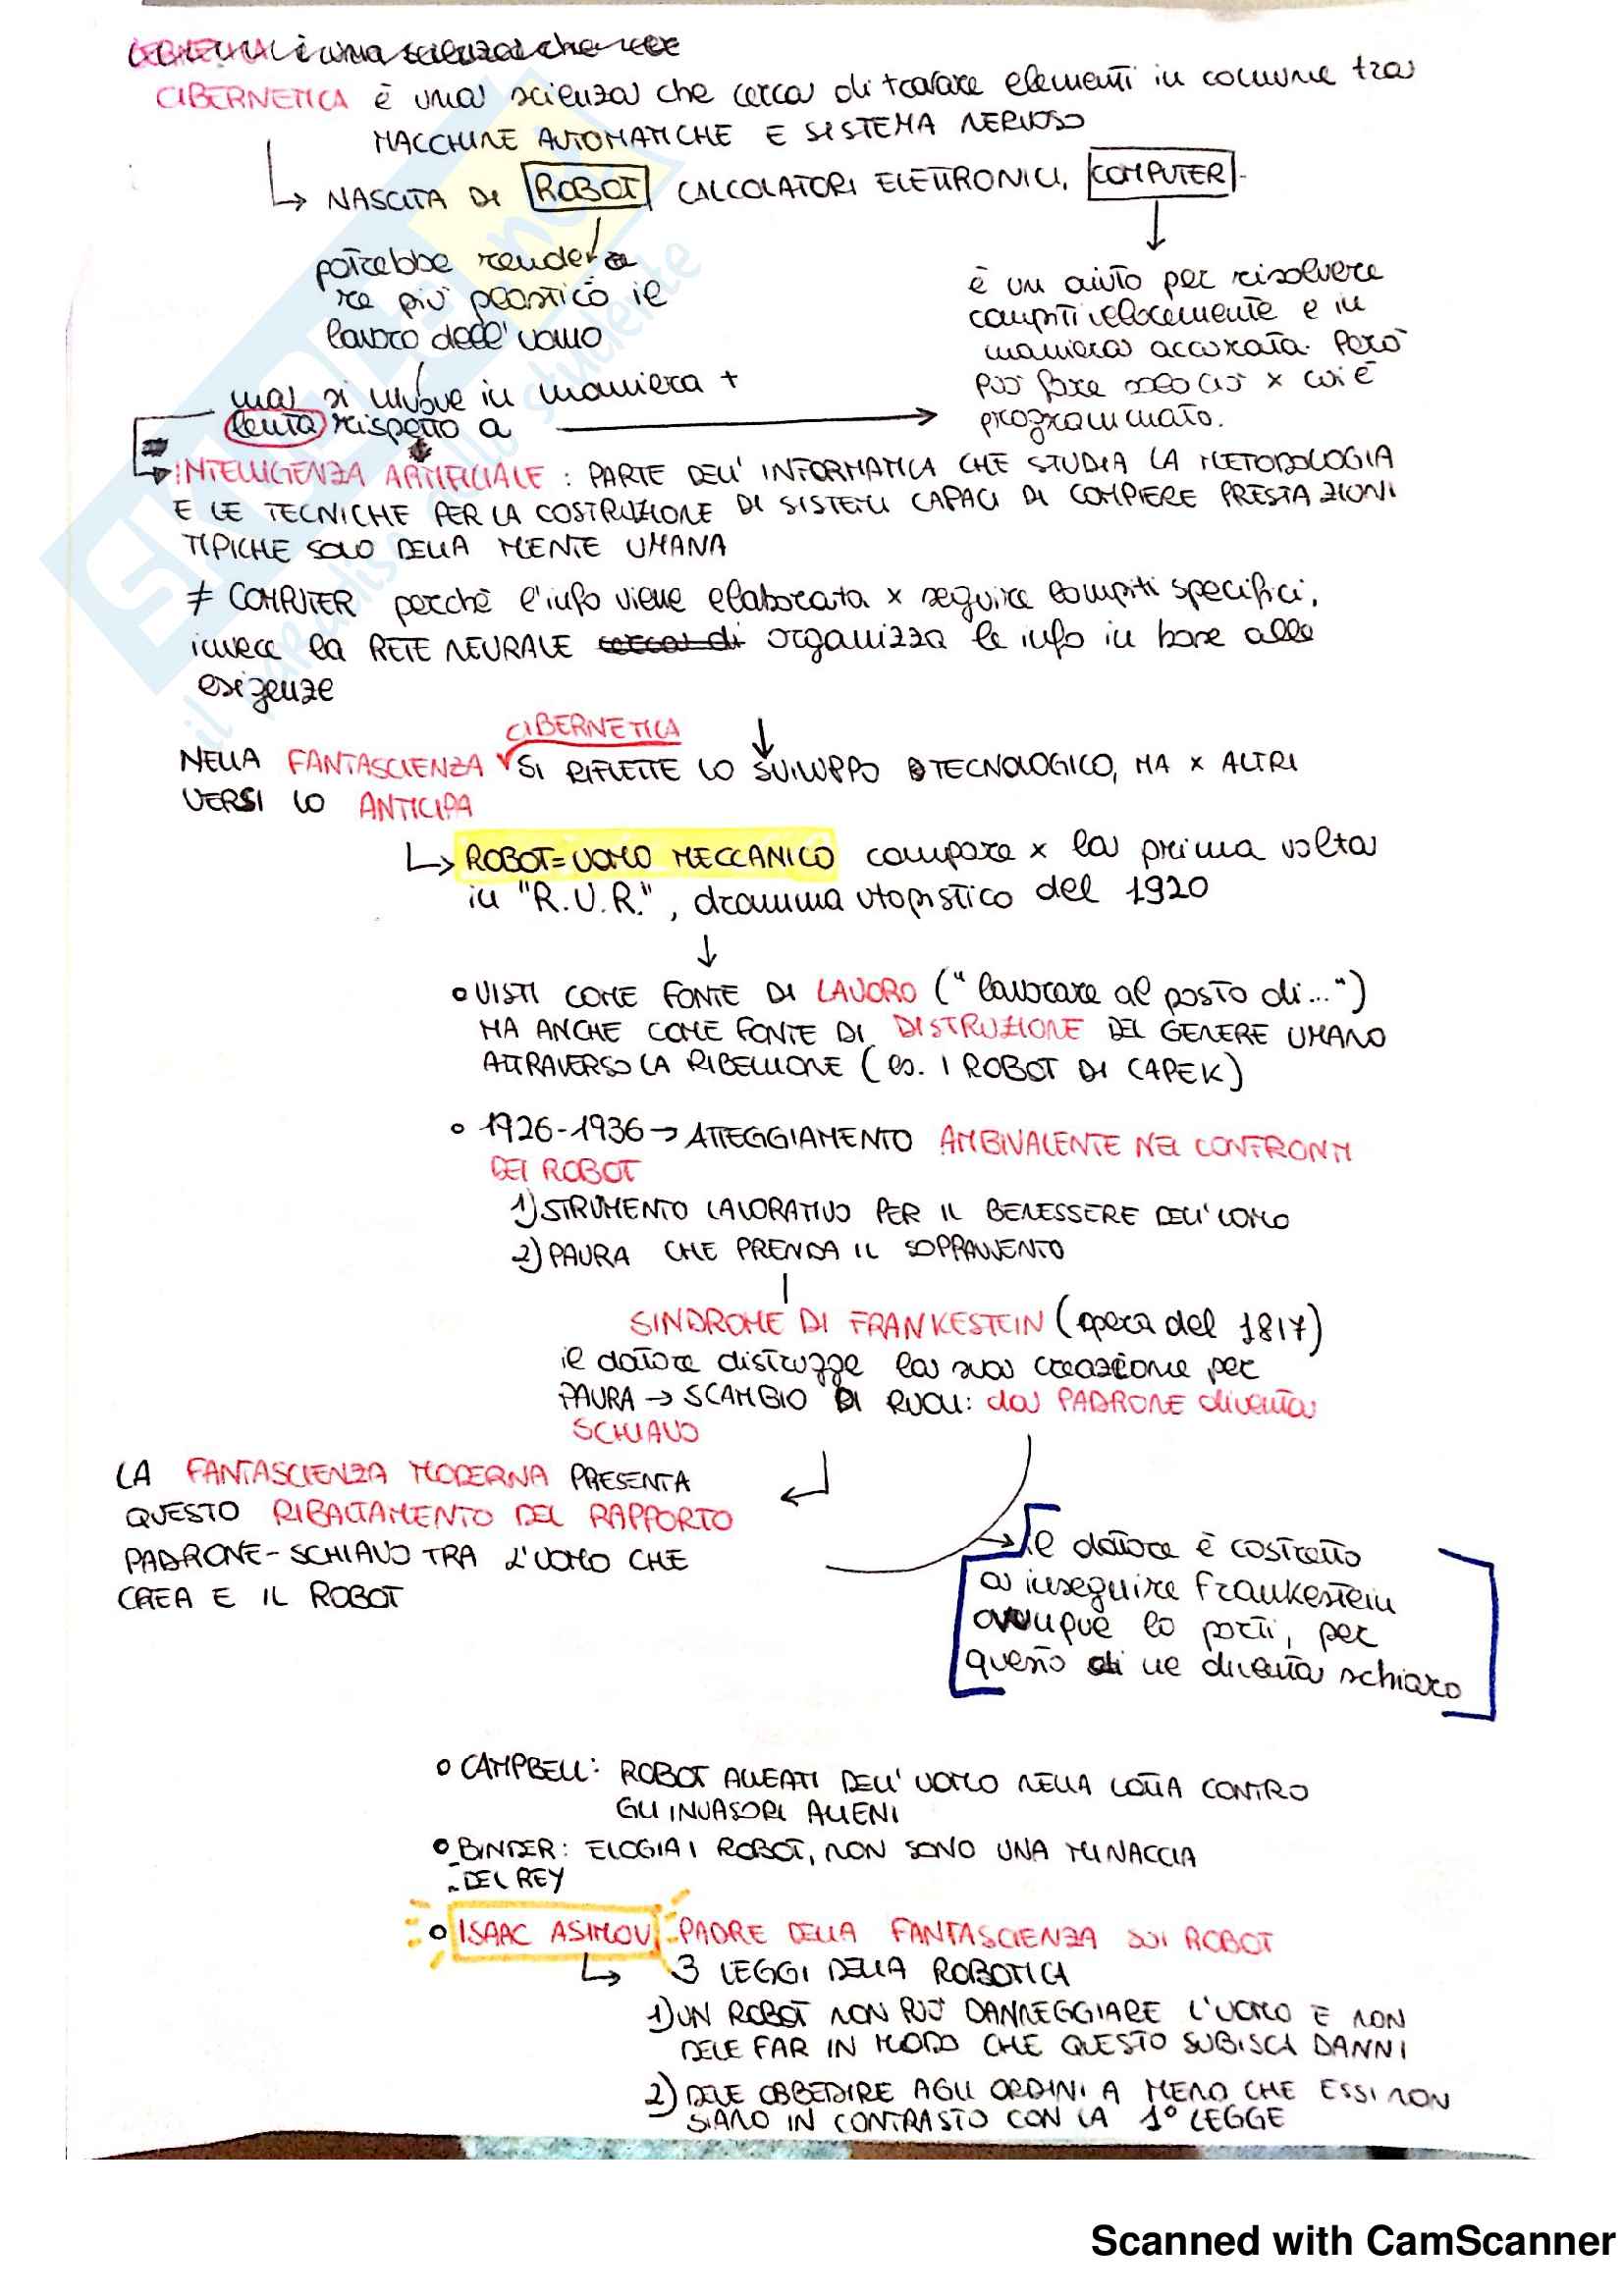 CIBERNETICA è una scienza che cerca di trovare elementi in comune tra
MACCHINE AUTOMATICHE E SISTEMA NERVOSO
NASCITA DI ROBOT CALCOLATORI ELETTRONICI, COMPUTER.
potrebbe rende
re più plastico il
lavoro dell'uomo
ma si muove in maniera +
lenta rispetto a
è un aiuto per risolvere
compiti velocemente e in
maniera accurata. Però
può fare solo ciò x cui è
programmato.
INTELLIGENZA ARTIFICIALE : PARTE DELL'INFORMATICA CHE STUDIA LA METODOLOGIA
E LE TECNICHE PER LA COSTRUZIONE DI SISTEMI CAPACI DI COMPIERE PRESTAZIONI
TIPICHE SOLO DELLA MENTE UMANA
≠ COMPUTER perchè l'info viene elaborata x seguire compiti specifici,
invece la RETE NEURALE cerca di organizza le info in base alle
esigenze
CIBERNETICA
NELLA FANTASCIENZA SI RIFLETTE LO SVILUPPO TECNOLOGICO, MA x ALTRI
VERSI LO ANTICIPA
ROBOT=UOMO MECCANICO compare x la prima volta
in "R.U.R.", dramma utopistico del 1920
VISTI COME FONTE DI LAVORO ("lavorare al posto di...")
MA ANCHE COME FONTE DI DISTRUZIONE DEL GENERE UMANO
ATTRAVERSO LA RIBELLIONE (es. I ROBOT DI CAPEK)
1926-1936 → ATTEGGIAMENTO AMBIVALENTE NEI CONFRONTI
DEI ROBOT
1) STRUMENTO LAVORATIVO PER IL BENESSERE DELL'UOMO
2) PAURA CHE PRENDA IL SOPRAVVENTO
SINDROME DI FRANKESTEIN (opera del 1817)
il datore distrugge la sua creazione per
PAURA → SCAMBIO DI RUOLI: da PADRONE diventa
SCHIAVO
LA FANTASCIENZA MODERNA PRESENTA
QUESTO RIBALTAMENTO DEL RAPPORTO
PADRONE-SCHIAVO TRA L'UOMO CHE
CREA E IL ROBOT
il datore è costretto
a inseguire Frankestein
ovunque lo porti, per
questo ne diventa schiavo
CAMPBELL: ROBOT ALLEATI DELL'UOMO NELLA LOTTA CONTRO
GLI INVASORI ALIENI
BINDER: ELOGIA I ROBOT, NON SONO UNA MINACCIA
DEL REY
ISAAC ASIMOV PADRE DELLA FANTASCIENZA SUI ROBOT
3 LEGGI DELLA ROBOTICA
1) UN ROBOT NON PUÒ DANNEGGIARE L'UOMO E NON
DEVE FAR IN MODO CHE QUESTO SUBISCA DANNI
2) DEVE OBBEDIRE AGLI ORDINI A MENO CHE ESSI NON
SIANO IN CONTRASTO CON LA 1° LEGGE
Scanned with CamScanner